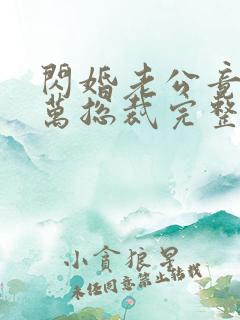 閃婚老公竟
萬總裁完整
小貪狼星
未经同意禁止转载